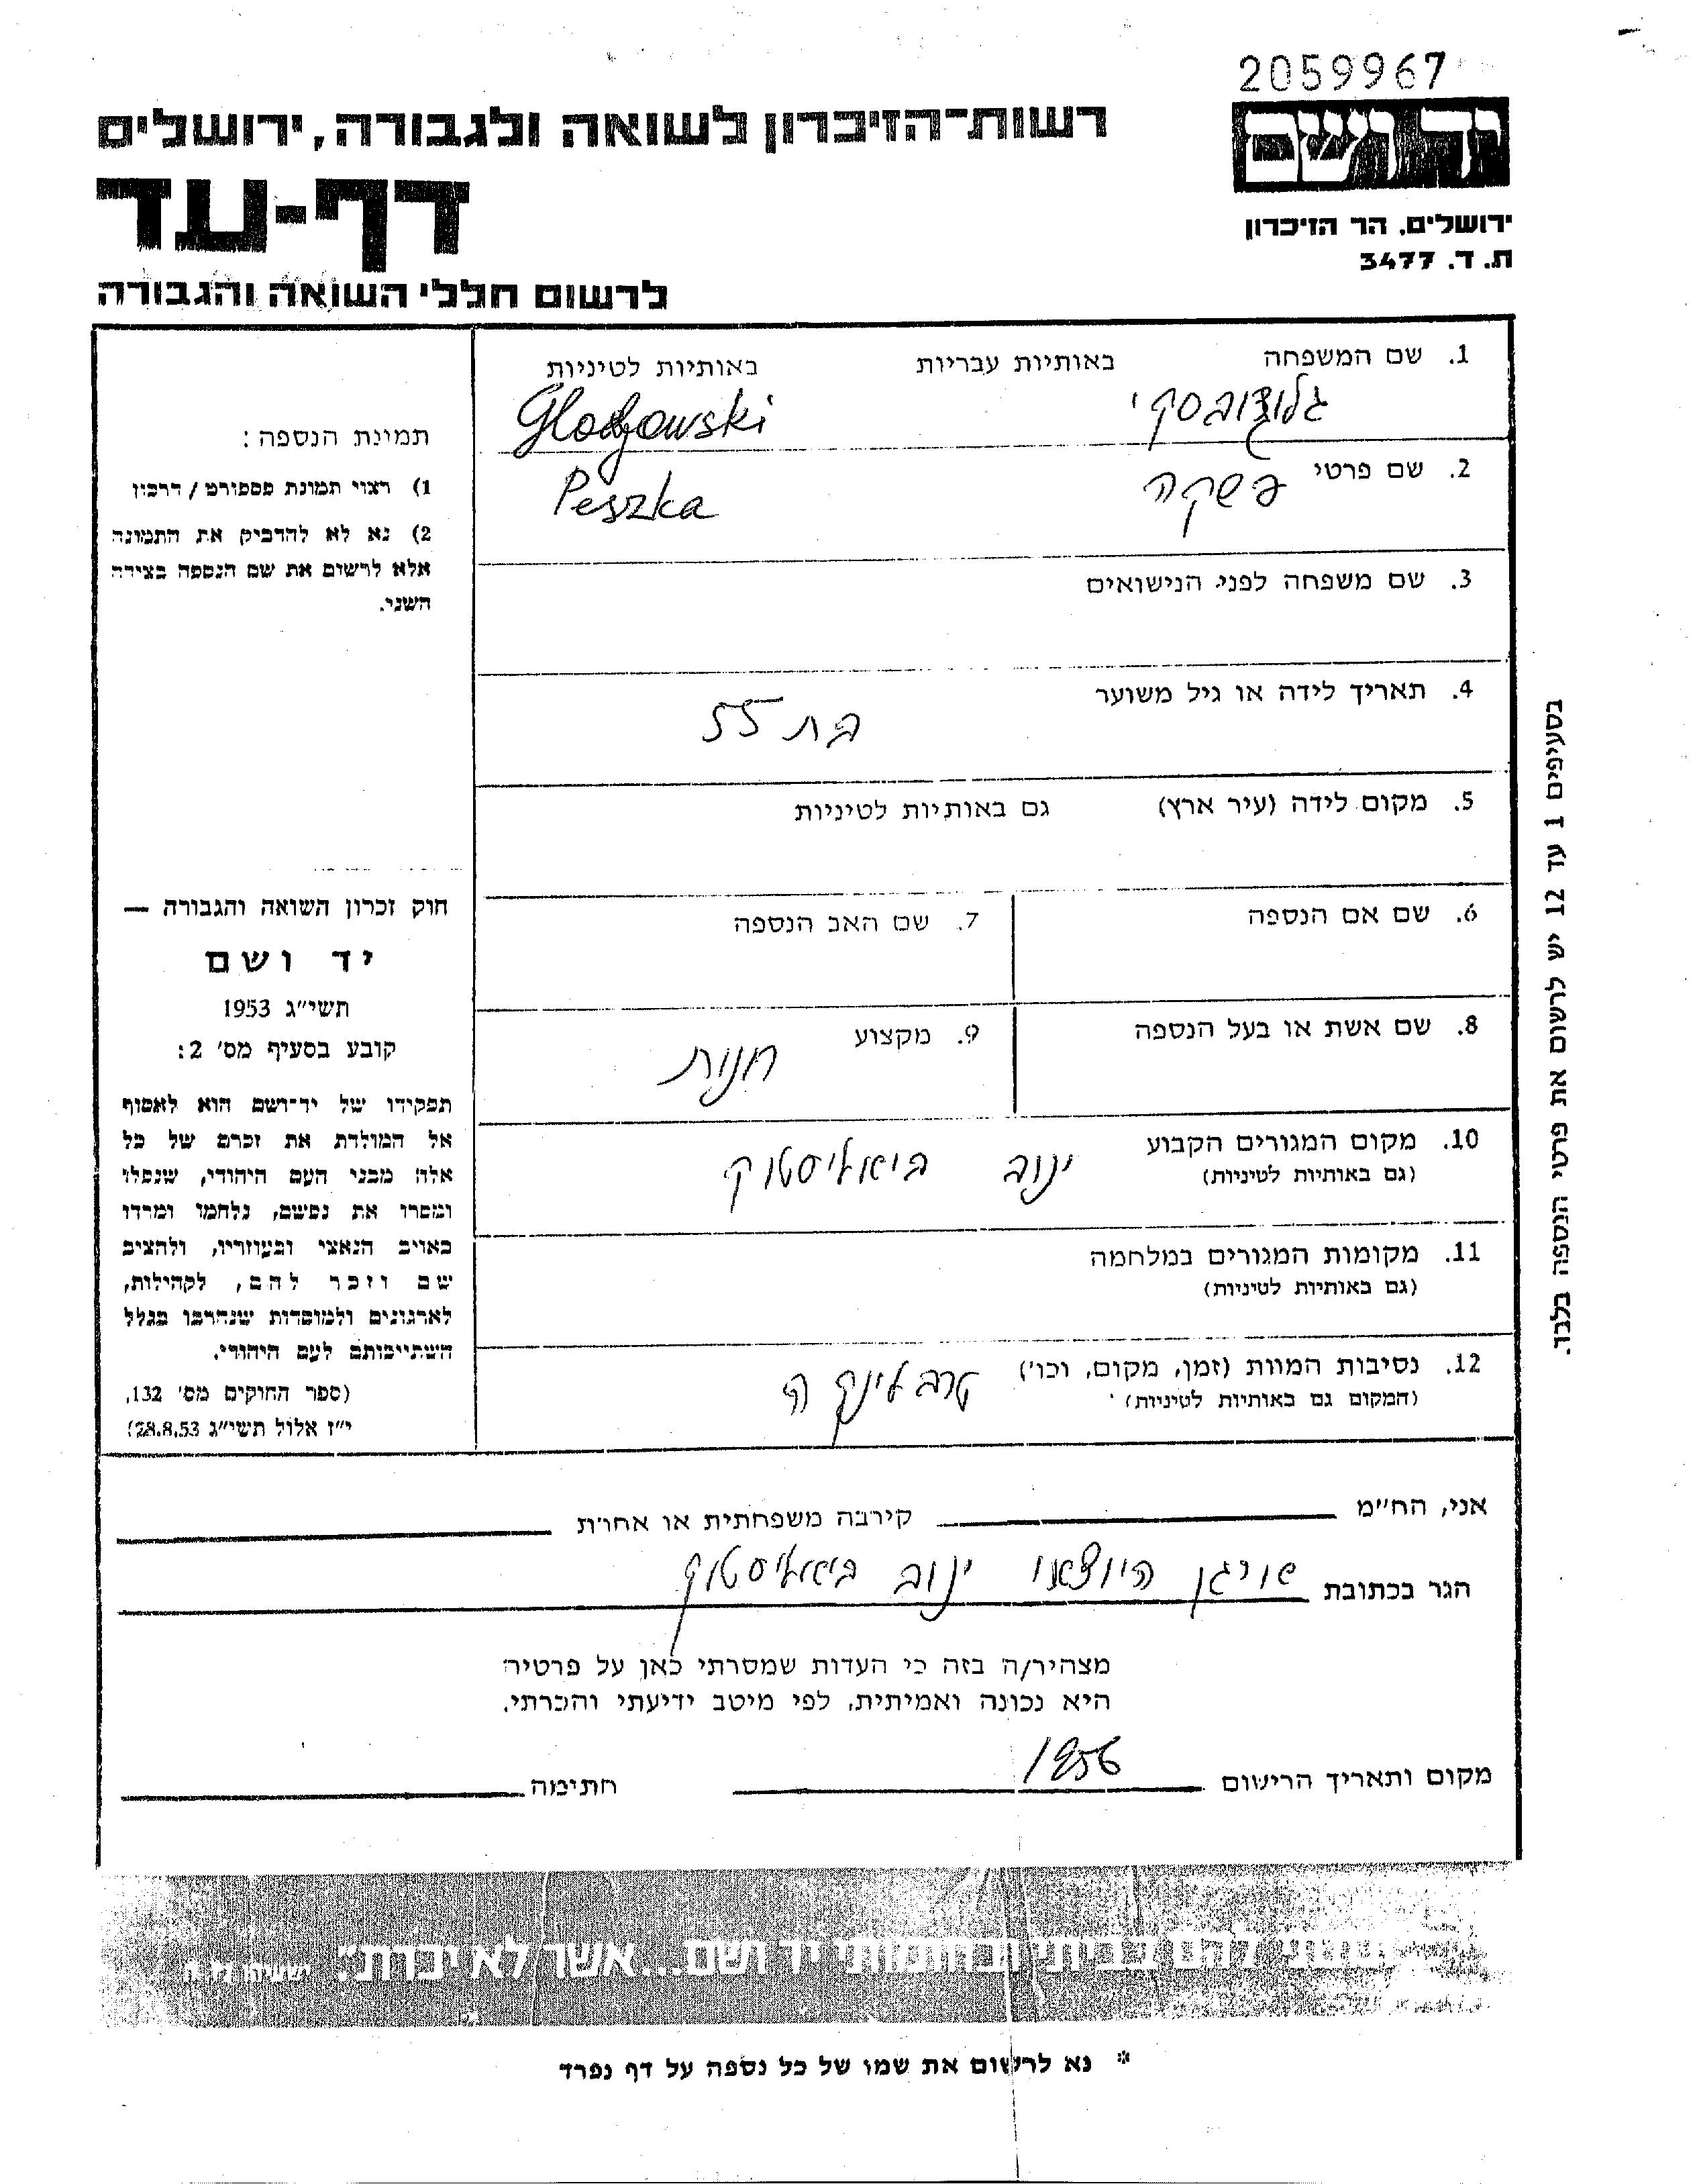 2059967
יד ושם
רשות־הזיכרון לשואה ולגבורה, ירושלים
דף-עד
ירושלים, הר הזיכרון
ת. ד. 3477
לרשום חללי השואה והגבורה
1. שם המשפחה באותיות עבריות באותיות לטיניות
Glodzowski
2. שם פרטי פשקה Peszka
3. שם משפחה לפני הנישואים
4. תאריך לידה או גיל משוער
בת 55
5. מקום לידה (עיר ארץ) גם באותיות לטיניות
6. שם אם הנספה 7. שם האב הנספה
8. שם אשת או בעל הנספה 9. מקצוע
חנות
10. מקום המגורים הקבוע
(גם באותיות לטיניות)
ינוב ביאליסטוק
11. מקומות המגורים במלחמה
(גם באותיות לטיניות)
12. נסיבות המוות (זמן, מקום, וכו')
(המקום גם באותיות לטיניות)
טרבלינקה
תמונת הנספה:
1) רצוי תמונת פספורט / דרכון
2) נא לא להדביק את התמונה
אלא לרשום את שם הנספה בצידה
השני.
חוק זכרון השואה והגבורה —
יד ושם
תשי״ג 1953
קובע בסעיף מס' 2:
תפקידו של יד־ושם הוא לאסוף
אל המולדת את זכרם של כל
אלה מבני העם היהודי, שנפלו
ומסרו את נפשם, נלחמו ומרדו
באויב הנאצי ובעוזריו, ולהציב
שם וזכר להם, לקהילות,
לארגונים ולמוסדות שנחרבו בגלל
השתייכותם לעם היהודי.
(ספר החוקים מס' 132,
י״ז אלול תשי״ג 28.8.53)
בסעיפים 1 עד 12 יש לרשום את פרטי הנספה בלבד.
אני, הח״מ קירבה משפחתית או אחרת
הגר בכתובת ארגון יוצאי ינוב ביאליסטוק
מצהיר/ה בזה כי העדות שמסרתי כאן על פרטיה
היא נכונה ואמיתית, לפי מיטב ידיעתי והכרתי.
מקום ותאריך הרישום 1956 חתימה
להם בביתי ובחומותי יד ושם...אשר לא יכרת״.
* נא לרשום את שמו של כל נספה על דף נפרד